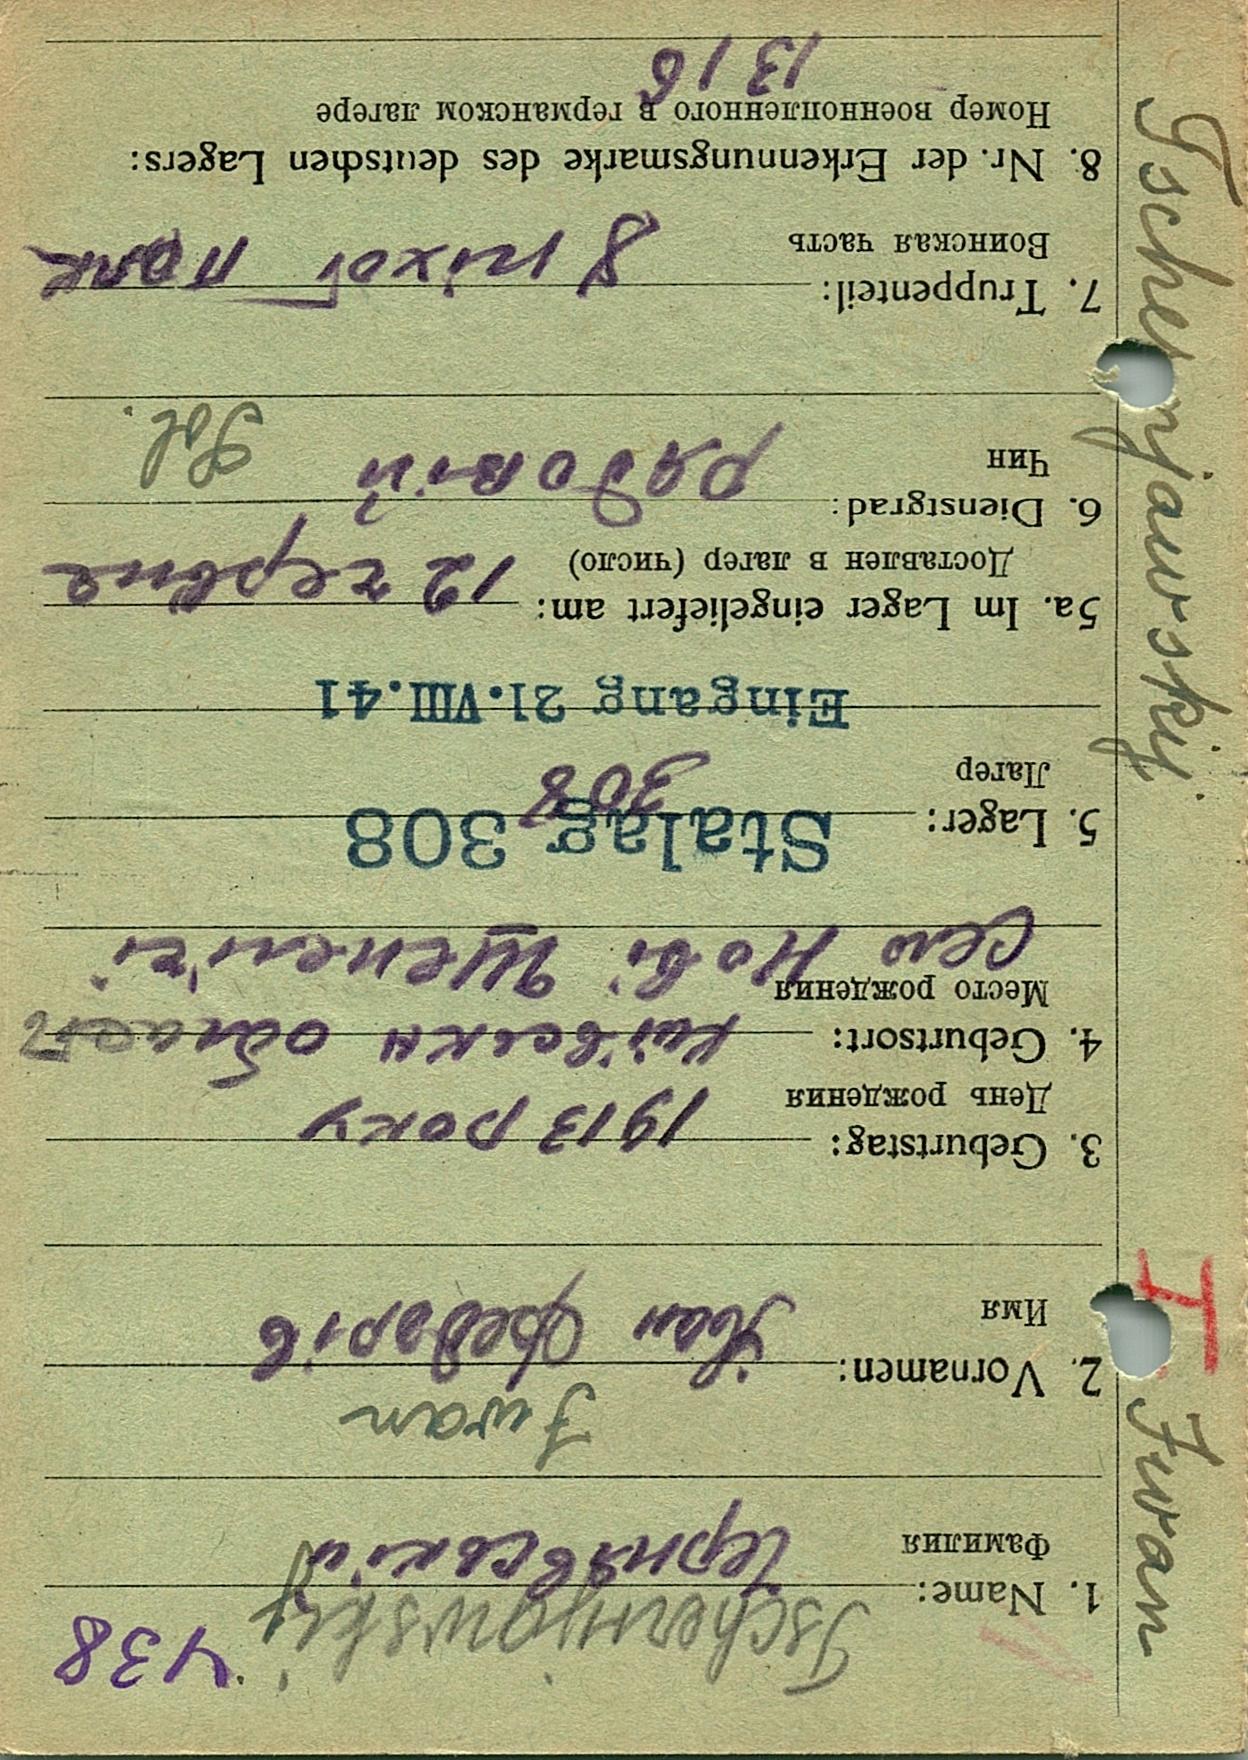 438
Tschernjawskij
1. Name: Чернявський
Фамилия
Iwan
2. Vornamen: Іван Федорів
Имя
3. Geburtstag: 1913 року
День рождения
4. Geburtsort: київська область
Место рождения
Село Нові Шепеличі
5. Lager: Stalag 308
308
Лагер
Eingang 21.VIII.41
5a. Im Lager eingeliefert am: 12 червня
Доставлен в лагер (число)
6. Dienstgrad: рядовій Sol.
Чин
7. Truppenteil: 8 піхот полк
Воинская часть
8. Nr. der Erkennungsmarke des deutschen Lagers:
Номер военнопленного в германском лагере
1316
Tschernjawskij, Iwan